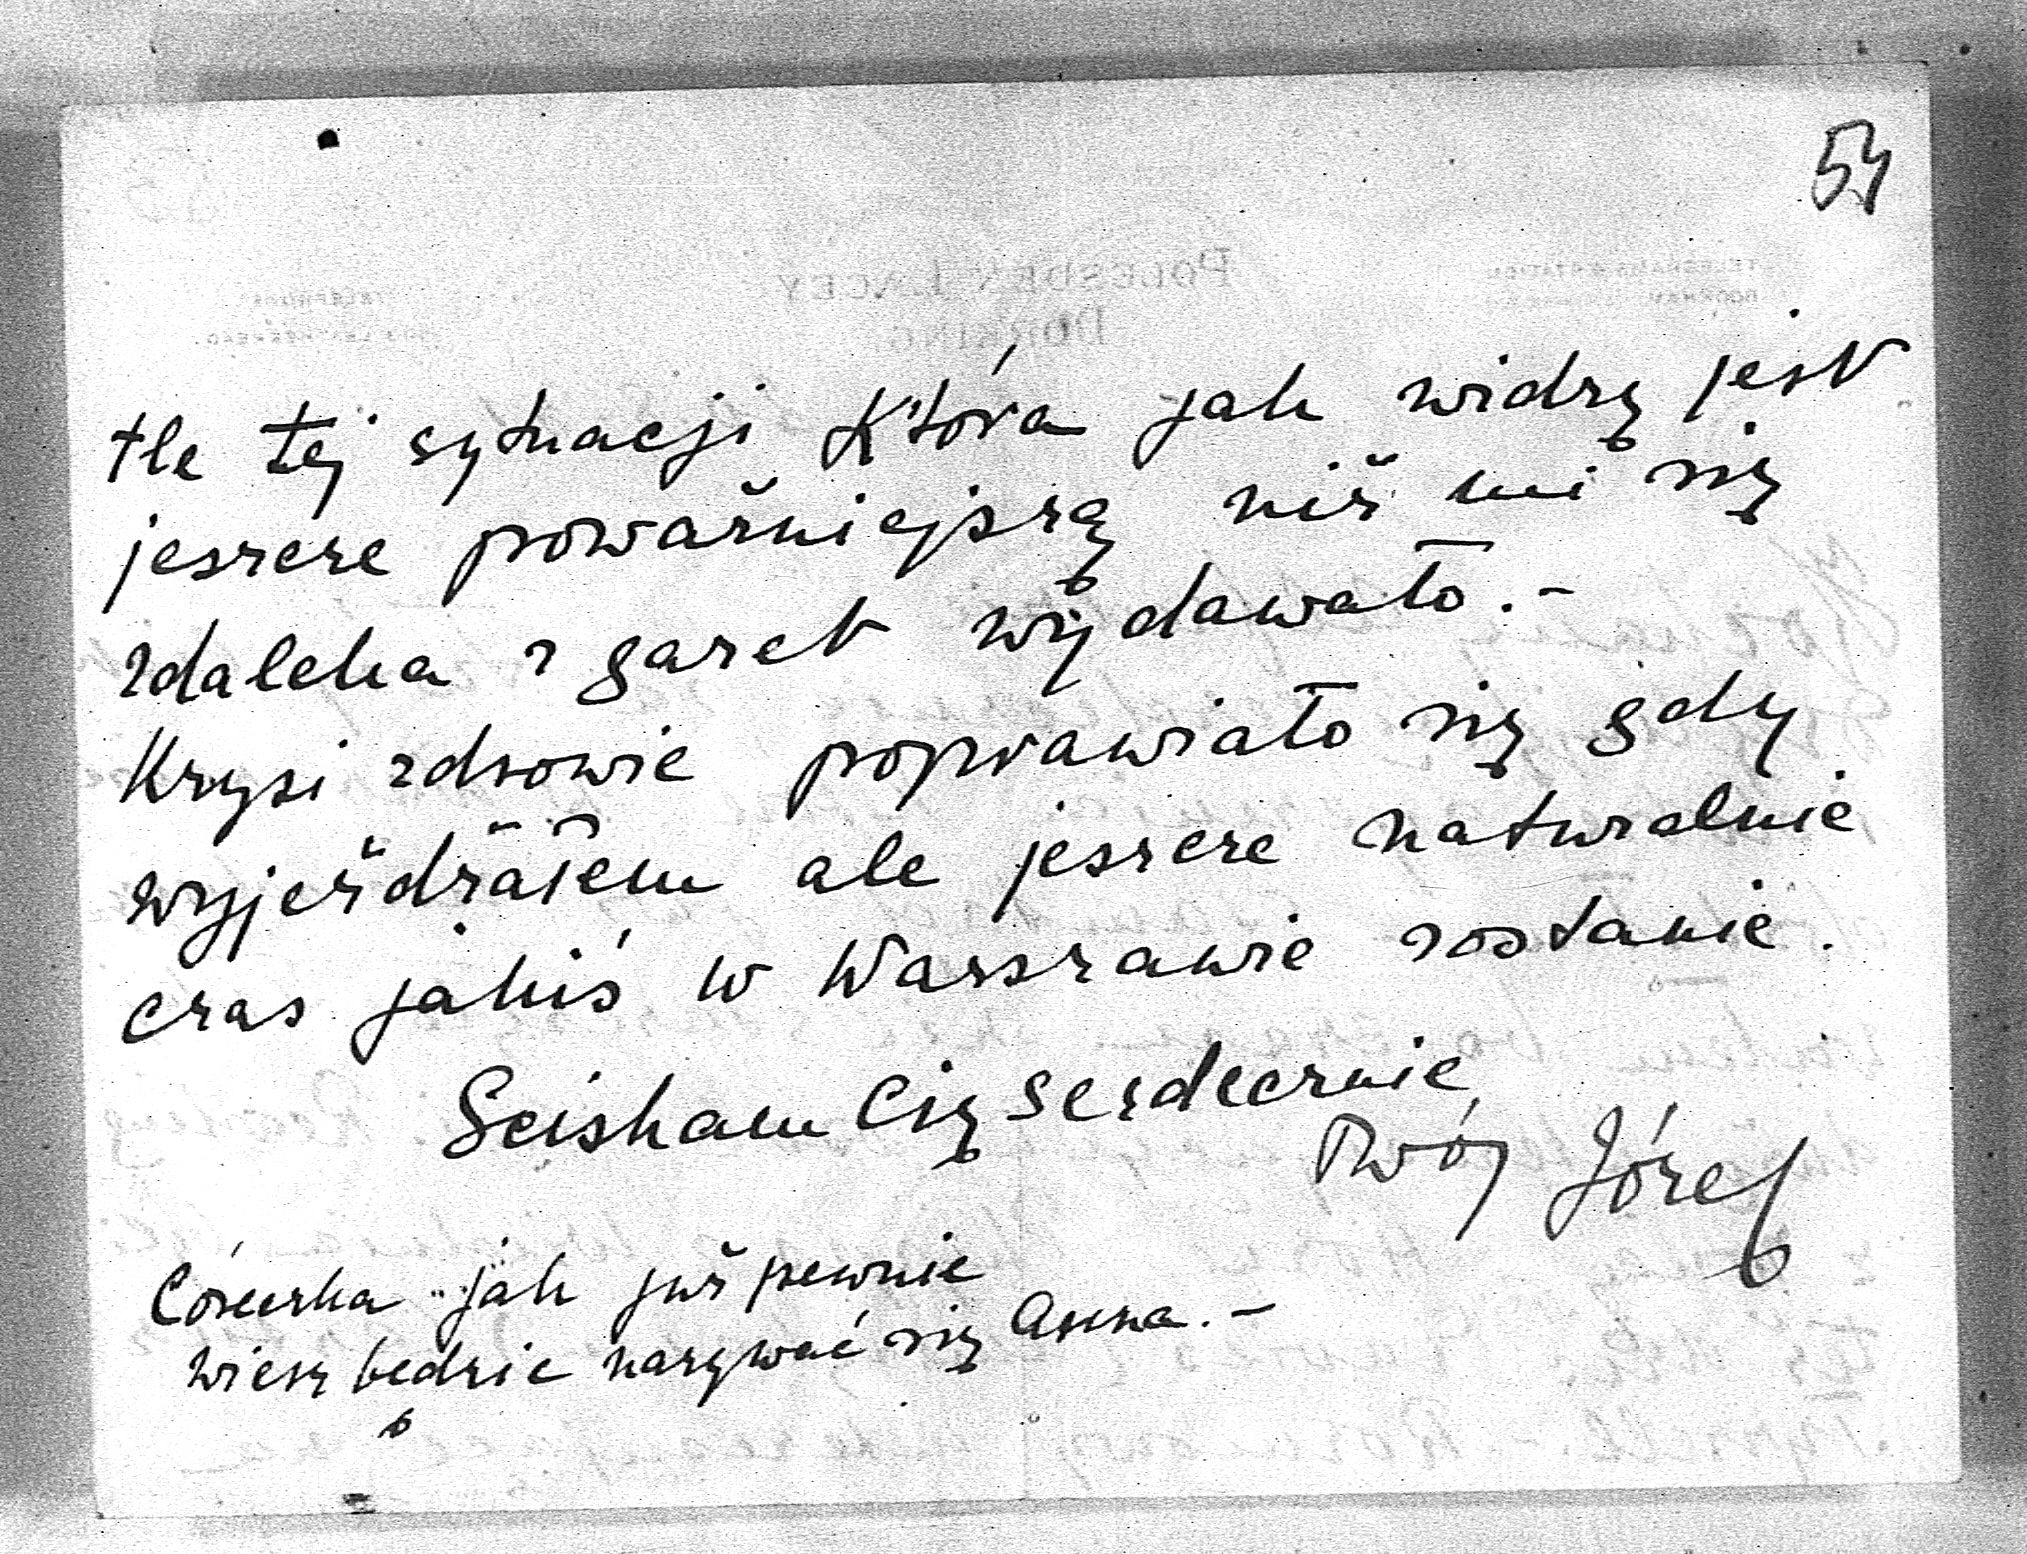 54
tle tej sytuacji która jak widzę jest
jeszcze poważniejszą niż mi się
zdaleka z gazet wydawało.-
Krysi zdrowie poprawiało się gdy
wyjeżdżałem ale jeszcze naturalnie
czas jakiś w Warszawie zostanie.
Sciskam Cię serdecznie
Twój Józef
Córeczka jak już pewnie
wiesz będzie nazywać się Anna.-